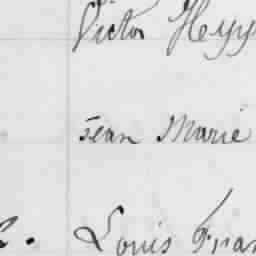 Victor Heyy
Jean Marie
Louis Fran